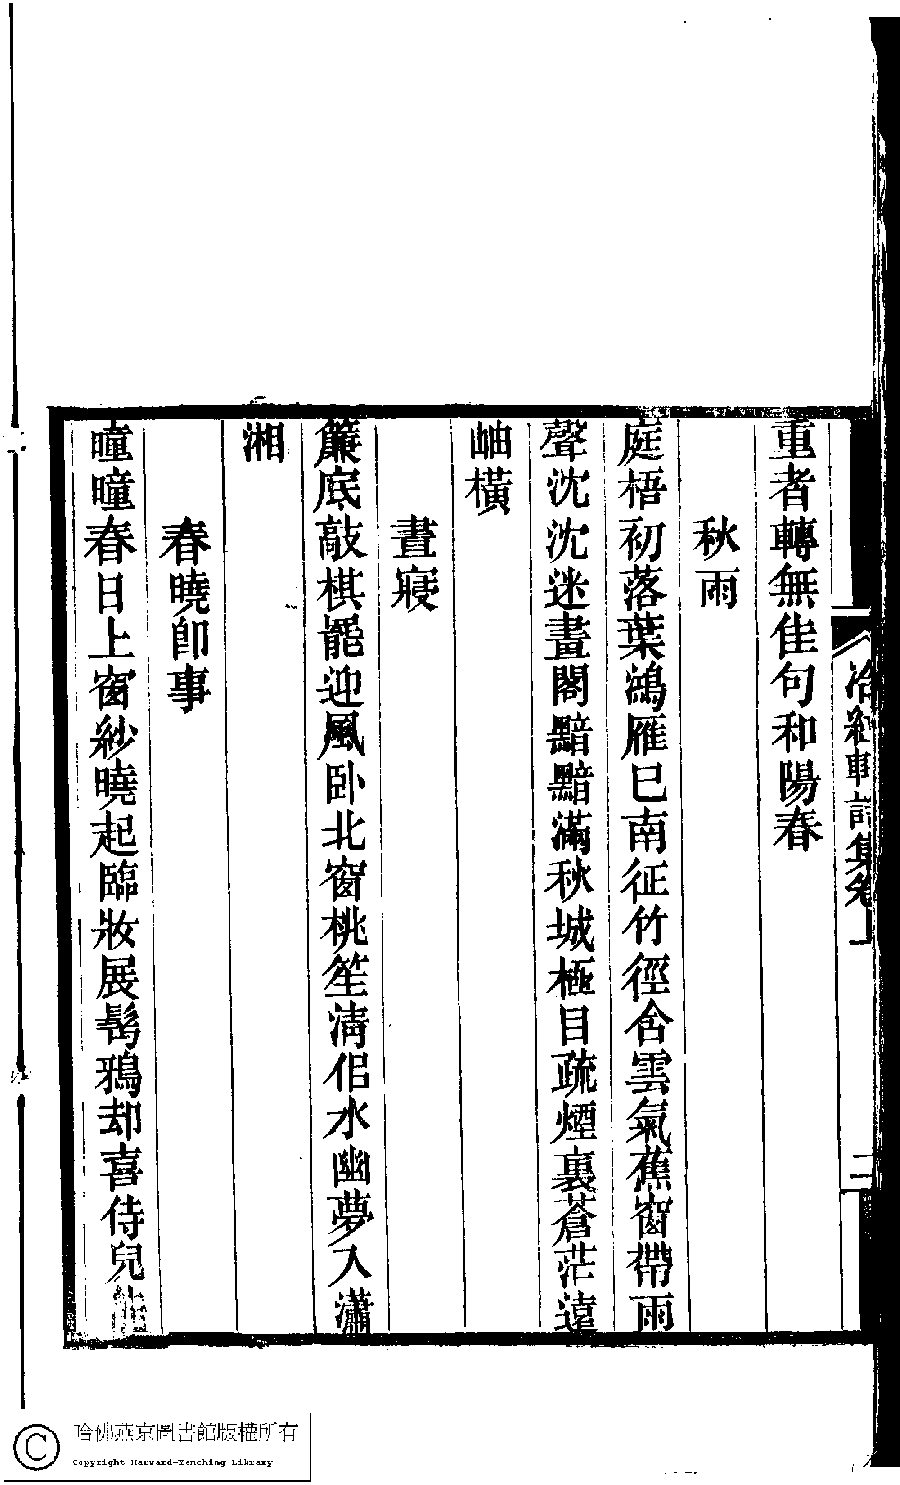 重者轉無佳句和陽春
秋雨
庭梧初落葉鴻雁已南征竹徑含雲氣蕉窗帶雨
聲沈沈迷畫閣黯黯滿秋城極目疏煙裏蒼茫遠
岫橫
晝寢
簾底敲棋罷迎風臥北窗桃笙清侶水幽夢入瀟
湘
春曉卽事
曈曈春日上窗紗曉起臨妝展髩鴉却喜侍兒
冷紅軒詩集卷上
二
哈佛燕京圖書館版權所有
Copyright Harvard-Yenching Library